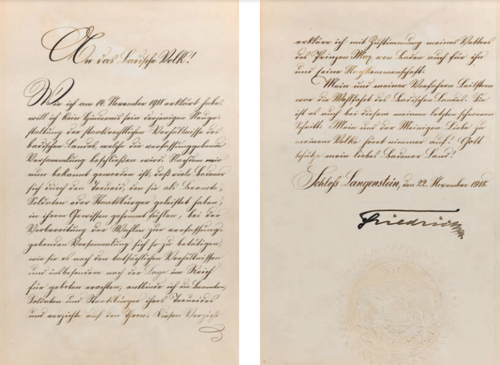 An das Badische Volk!
Wie ich am 14. November 1918 erklärt habe,
will ich kein Hindernis sein derjenigen Neuge-
staltung der staatsrechtlichen Verhältnisse des
badischen Landes, welche die verfassunggebende
Versammlung beschließen wird. Nachdem mir
nun bekannt geworden ist, daß viele Badener
sich durch den Treueid, den sie als Beamte,
Soldaten oder Staatsbürger geleistet haben,
in ihrem Gewissen gehemmt fühlen, bei der
Vorbereitung der Wahlen zur verfassung-
gebenden Versammlung sich so zu betätigen,
wie sie es nach den tatsächlichen Verhältnissen
und insbesondere nach der Lage im Reich
für geboten erachten, entbinde ich die Beamten,
Soldaten und Staatsbürger ihres Treueides
und verzichte auf den Thron. Diesen Verzicht
erkläre ich mit Zustimmung meines Vetters
des Prinzen Max von Baden auch für ihn
und seine Nachkommenschaft.
Mein und meiner Vorfahren Leitstern
war die Wohlfahrt des badischen Landes. Sie
ist es auch bei diesem meinem letzten schweren
Schritt. Mein und der Meinigen Liebe zu
meinem Volke hört nimmer auf! Gott
schütze mein liebes Badener Land.
Schloß Langenstein, den 22. November 1918.
Friedrich